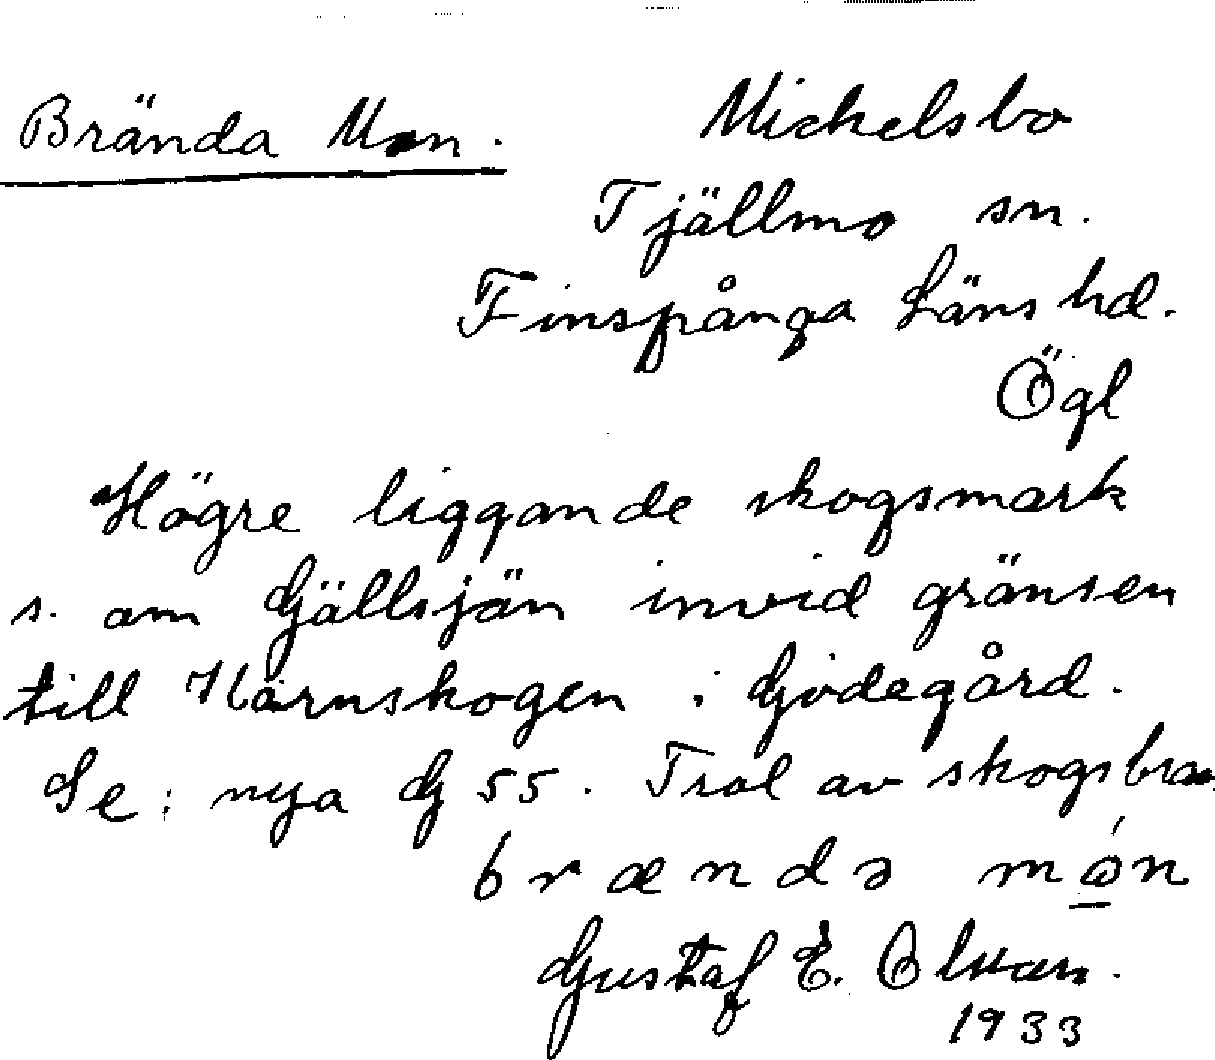 Brända Mon. Mickelsbo
Tjällmo sn.
Finspånga Läns hd.
Ögl
Högre liggande skogsmark
s. om Gällsjön invid gränsen
till Hornskogen i Godegård.
Se: nya G 55. Trol av skogsbra
brændə mo̱n
Gustaf E. Olson.
1933